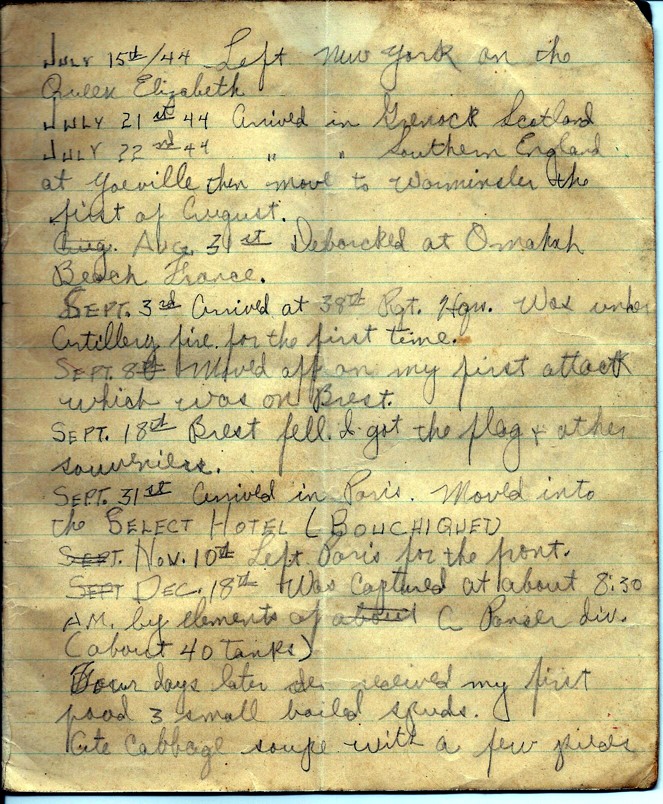 JULY 15th/44 Left New York on the
Queen Elizabeth
JULY 21st 44 Arrived in Grenock Scotland
JULY 22nd 44 " " Southern England
at Yoeville then move to Warminster the
first of August.
Aug. AUG. 31st Debarcked at Omahah
Beach France.
SEPT. 3rd Arrived at 38th Rgt. Hqs. Was under
Artillery fire for the first time.
SEPT 8th Moved off on my first attack
which was on Brest.
SEPT. 18th Brest fell. I got the flag & other
souveniers.
SEPT. 31st Arrived in Paris. Moved into
the SELECT HOTEL (BOUCHIQUET)
SEPT. NOV. 10th Left Paris for the front.
SEPT DEC. 18th Was captured at about 8:30
A.M. by elements of about a Panser div.
(about 40 tanks)
Four days later received my first
food 3 small boiled spuds.
Ate cabbage soupe with a few